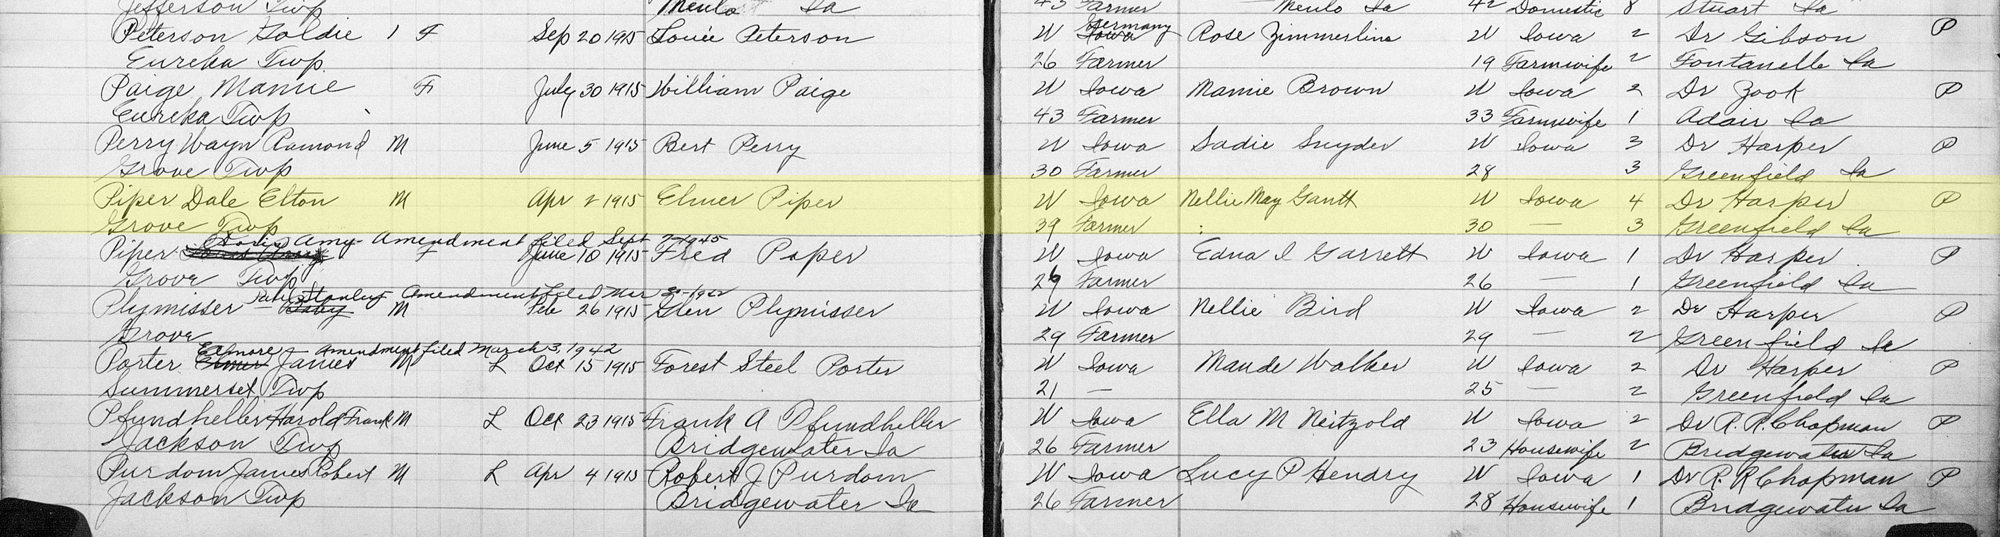 Jefferson Twp Menlo Ia 43 Farmer Menlo Ia 42 Domestic 8 Stuart Ia
Peterson Goldie 1 F Sep 20 1915 Louie Peterson W Germany Iowa Rose Zimmerline W Iowa 2 Dr Gibson P
Eureka Twp 26 Farmer 19 Farmwife 2 Fontanelle Ia
Paige Mamie F July 30 1915 William Paige W Iowa Mamie Brown W Iowa 2 Dr Zook P
Eureka Twp 43 Farmer 33 Farmwife 1 Adair Ia
Perry Wayn Ramond M June 5 1915 Bert Perry W Iowa Sadie Snyder W Iowa 3 Dr Harper P
Grove Twp 30 Farmer 28 3 Greenfield Ia
Piper Dale Elton M Apr 2 1915 Elmer Piper W Iowa Nellie May Gantt W Iowa 4 Dr Harper P
Grove Twp 39 Farmer 30 — 3 Greenfield Ia
Doris Amy - Amendment filed Sept 1945
Piper F June 10 1915 Fred Piper W Iowa Edna I Garrett W Iowa 1 Dr Harper P
Grove Twp 29 Farmer 26 — 1 Greenfield Ia
Stanley - Amendment filed Mar 30-1942
Plymisser - Baby M Feb 26 1915 Glen Plymisser W Iowa Nellie Bird W Iowa 2 Dr Harper P
Grove 29 Farmer 29 — 2 Greenfield Ia
Elmore - Amendment filed March 3, 1942
Porter Elmer James M L Oct 15 1915 Forest Steel Porter W Iowa Maude Walker W Iowa 2 Dr Harper P
Summerset Twp 21 — 25 — 2 Greenfield Ia
Pfundheller Harold Frank M L Oct 23 1915 Frank A Pfundheller W Iowa Ella M Neitzold W Iowa 2 Dr R. R. Chapman P
Jackson Twp Bridgewater Ia 26 Farmer 23 Housewife 2 Bridgewater Ia
Purdom James Robert M L Apr 4 1915 Robert J Purdom W Iowa Lucy P Hendry W Iowa 1 Dr R. R Chapman P
Jackson Twp Bridgewater Ia 26 Farmer 28 Housewife 1 Bridgewater Ia